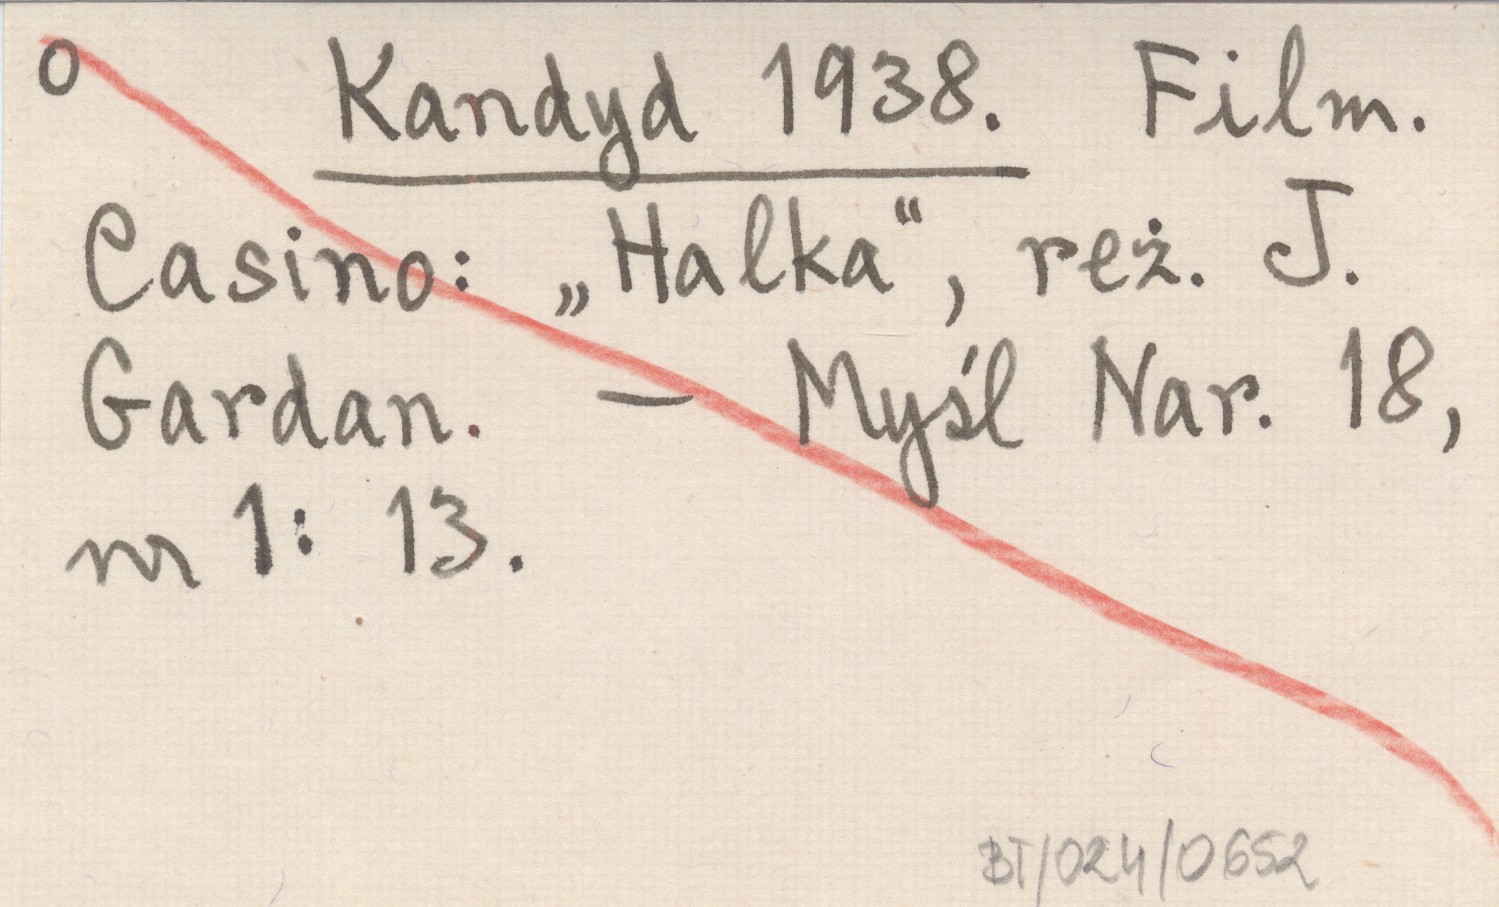 o Kandyd 1938. Film.
Casino: „Halka“, reż. J.
Gardan. — Myśl Nar. 18,
nr 1: 13.
BT/024/0652